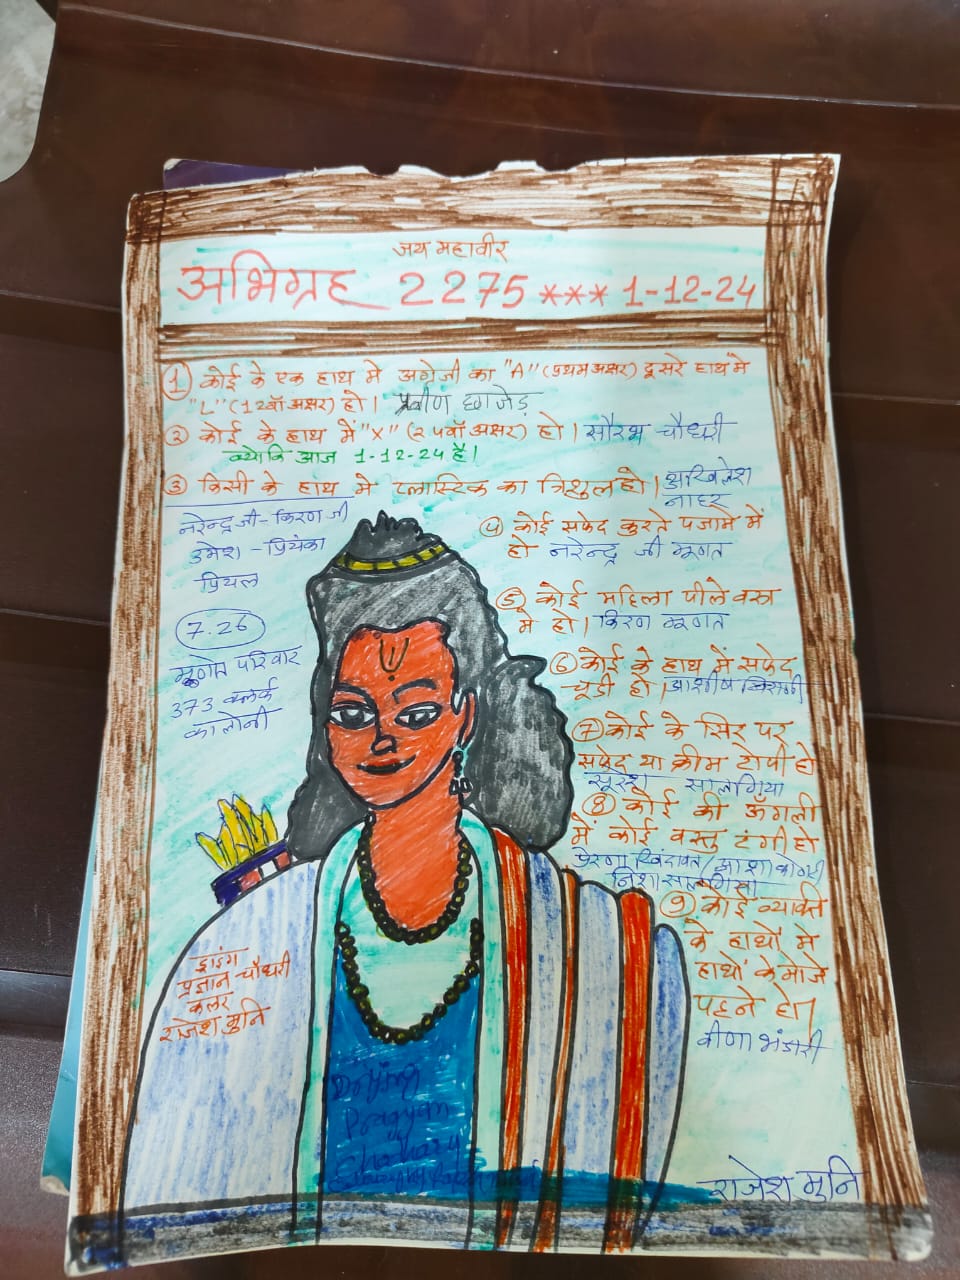 जय महावीर
अभिग्रह 2275 *** 1-12-24
① कोई के एक हाथ मे अग्रेजी का "A" (प्रथम अक्षर) दूसरे हाथ मे
"L" (12वॉ अक्षर) हो।
② कोई के हाथ में "X" (24वॉ अक्षर) हो। सौरभ चौधरी
क्योकि आज 1-12-24 है।
③ किसी के हाथ मे प्लास्टिक का त्रिशुल हो। अखिलेश
नाहर
नरेन्द्र जी - किरण जी
उमेश - प्रियंका
प्रियल
7.26
मूणत परिवार
373 क्लर्क
कालोनी
④ कोई सफेद कुरते पजामे में
हो नरेन्द्र जी मूणत
⑤ कोई महिला पीले वस्त्र
मे हो। किरण मूणत
⑥ कोई के हाथ में सफेद
चूडी हो। आशीष
⑦ कोई के सिर पर
सफेद या क्रीम टोपी हो
सूरेश सालगिया
⑧ कोई की ऊँगली
में कोई वस्तु टंगी हो
प्रेरणा / आशा
निशा सालगिया
⑨ कोई व्यक्ति
के हाथों मे
हाथों के मोजे
पहने हो।
वीणा भंडारी
ड्राइंग
प्रज्ञान चौधरी
कलर
राजेश मुनि
Drying
Pragyan
Chodhary
राजेश मुनि